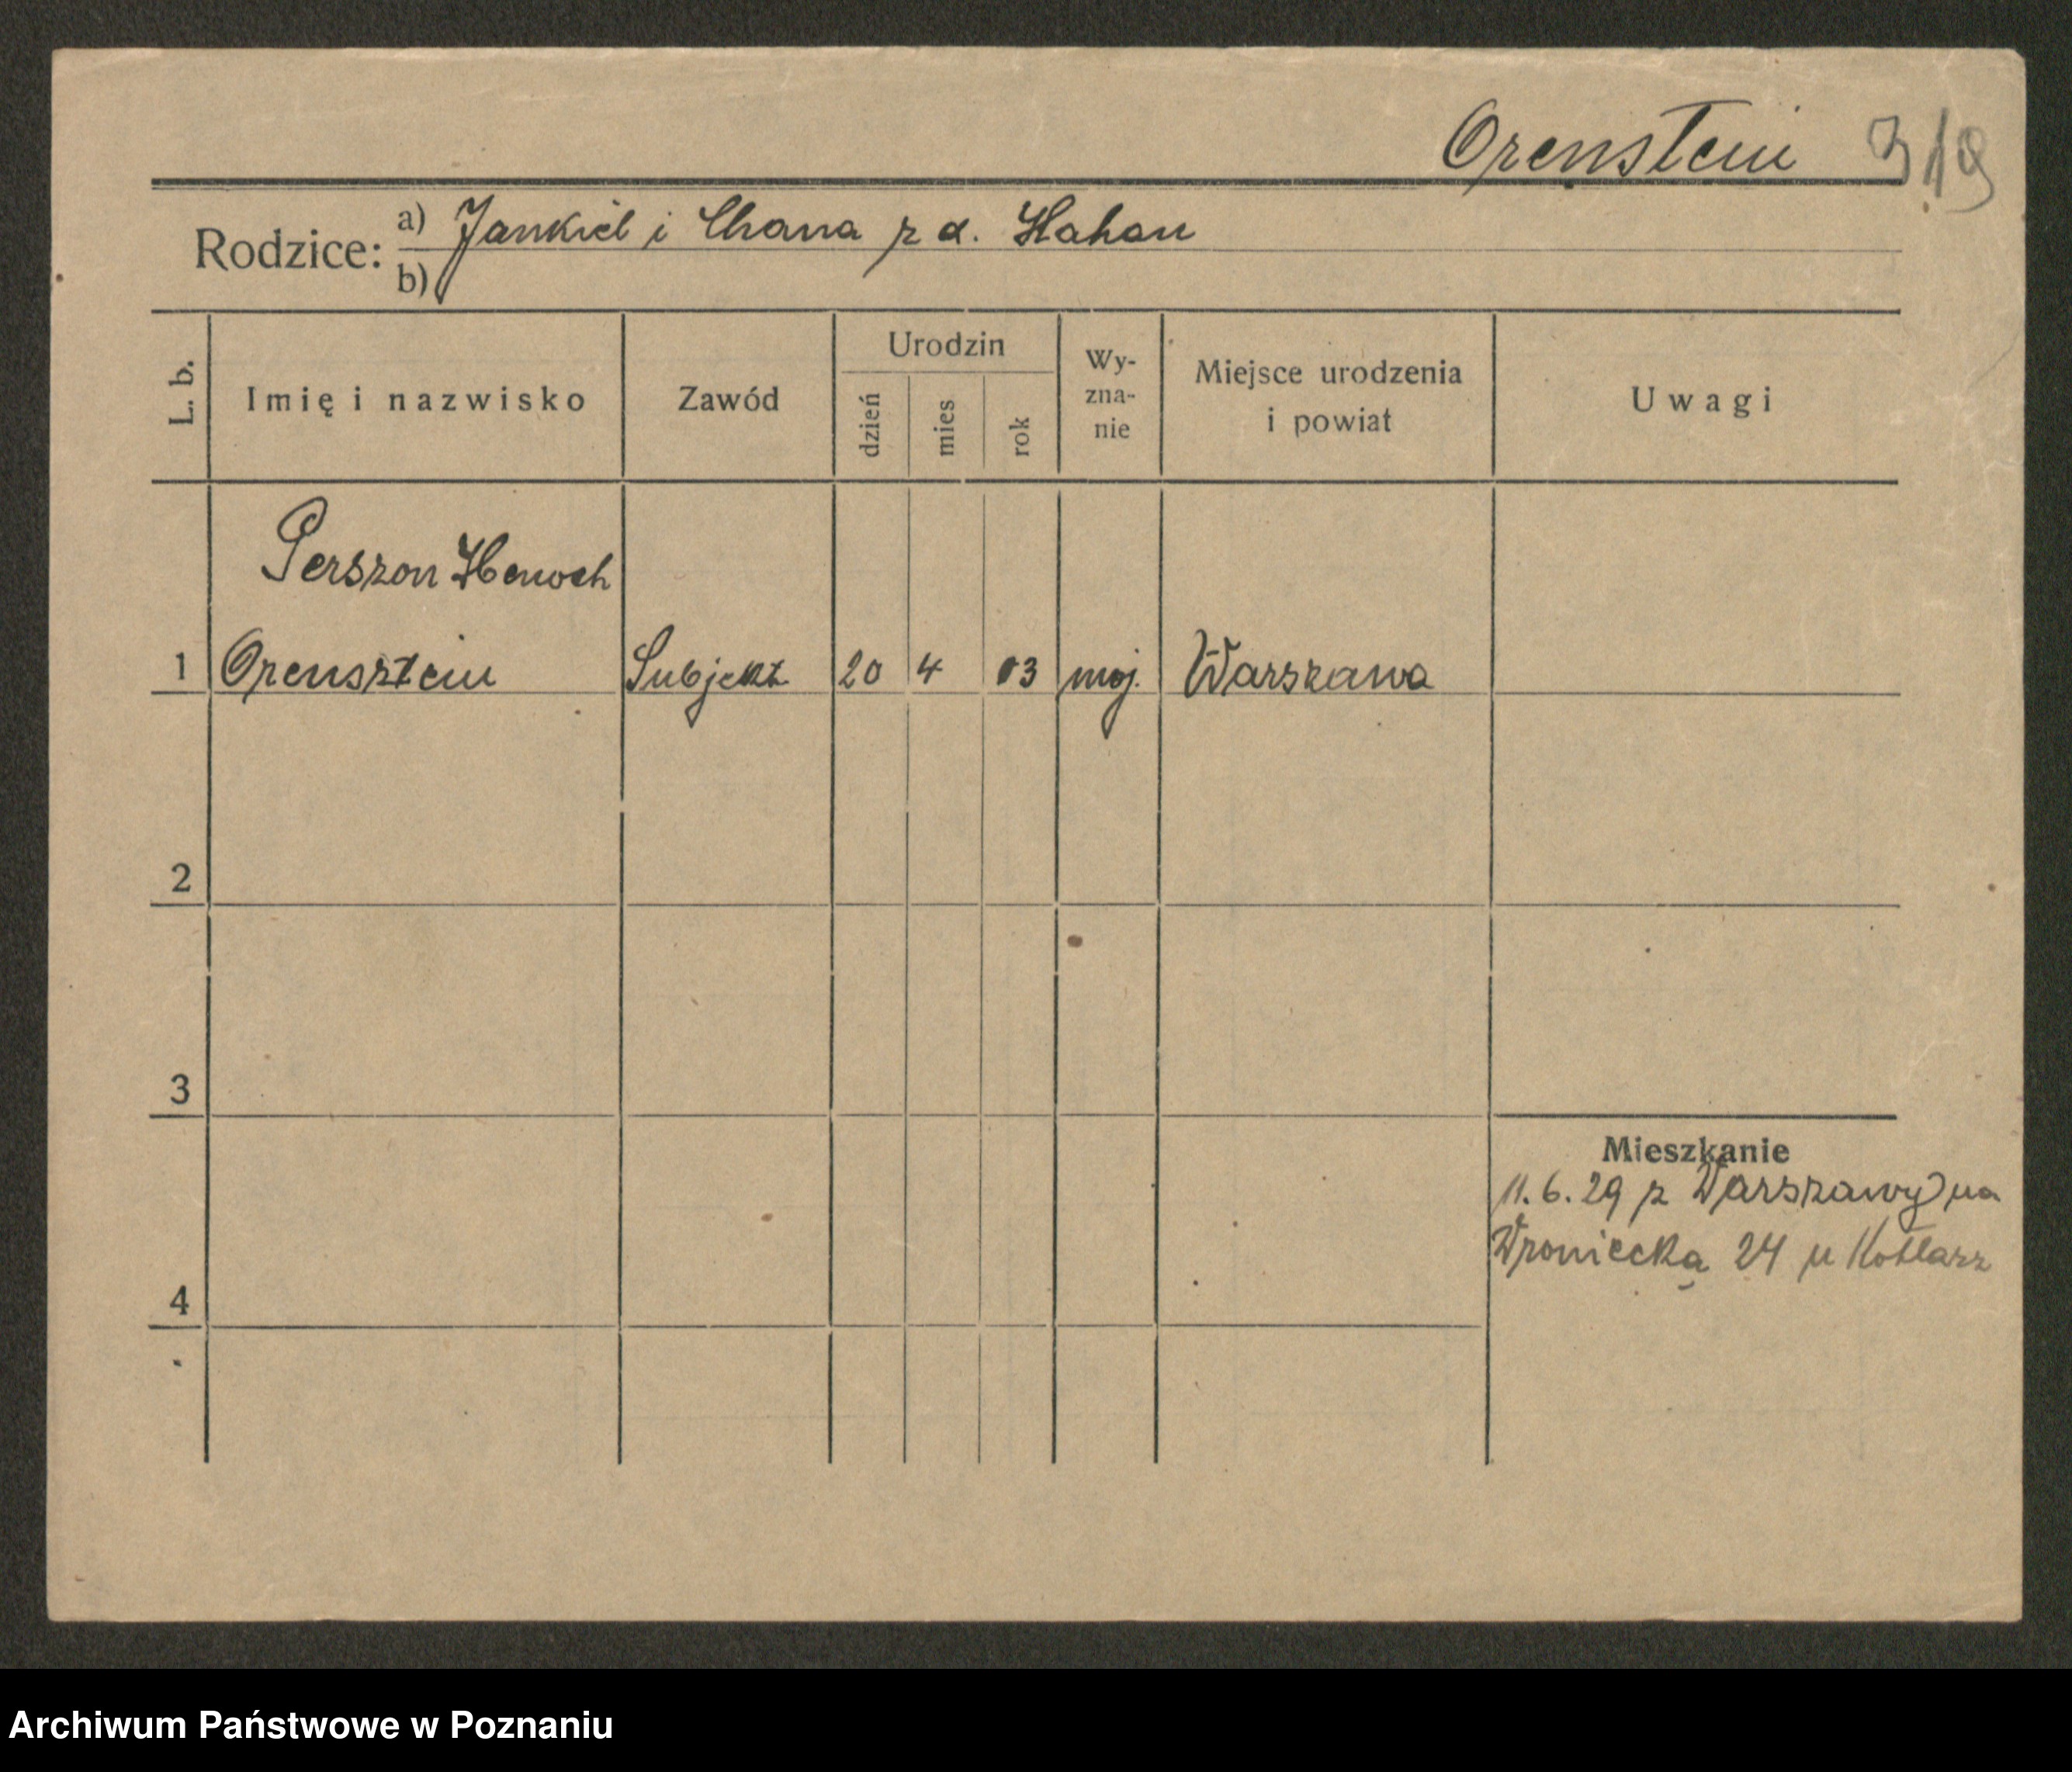 Orenstein 319
Rodzice: a) Jankiel i Chana z d. Hahan
b)
L. b. Imię i nazwisko Zawód Urodzin dzień mies rok Wyznanie Miejsce urodzenia i powiat Uwagi
Perszon Henoch
1 Orensztein Subjekt 20 4 03 moj. Warszawa
2
3
Mieszkanie
11.6.29 z Warszawy na
Wroniecka 24 u Kotlarz
4
Archiwum Państwowe w Poznaniu